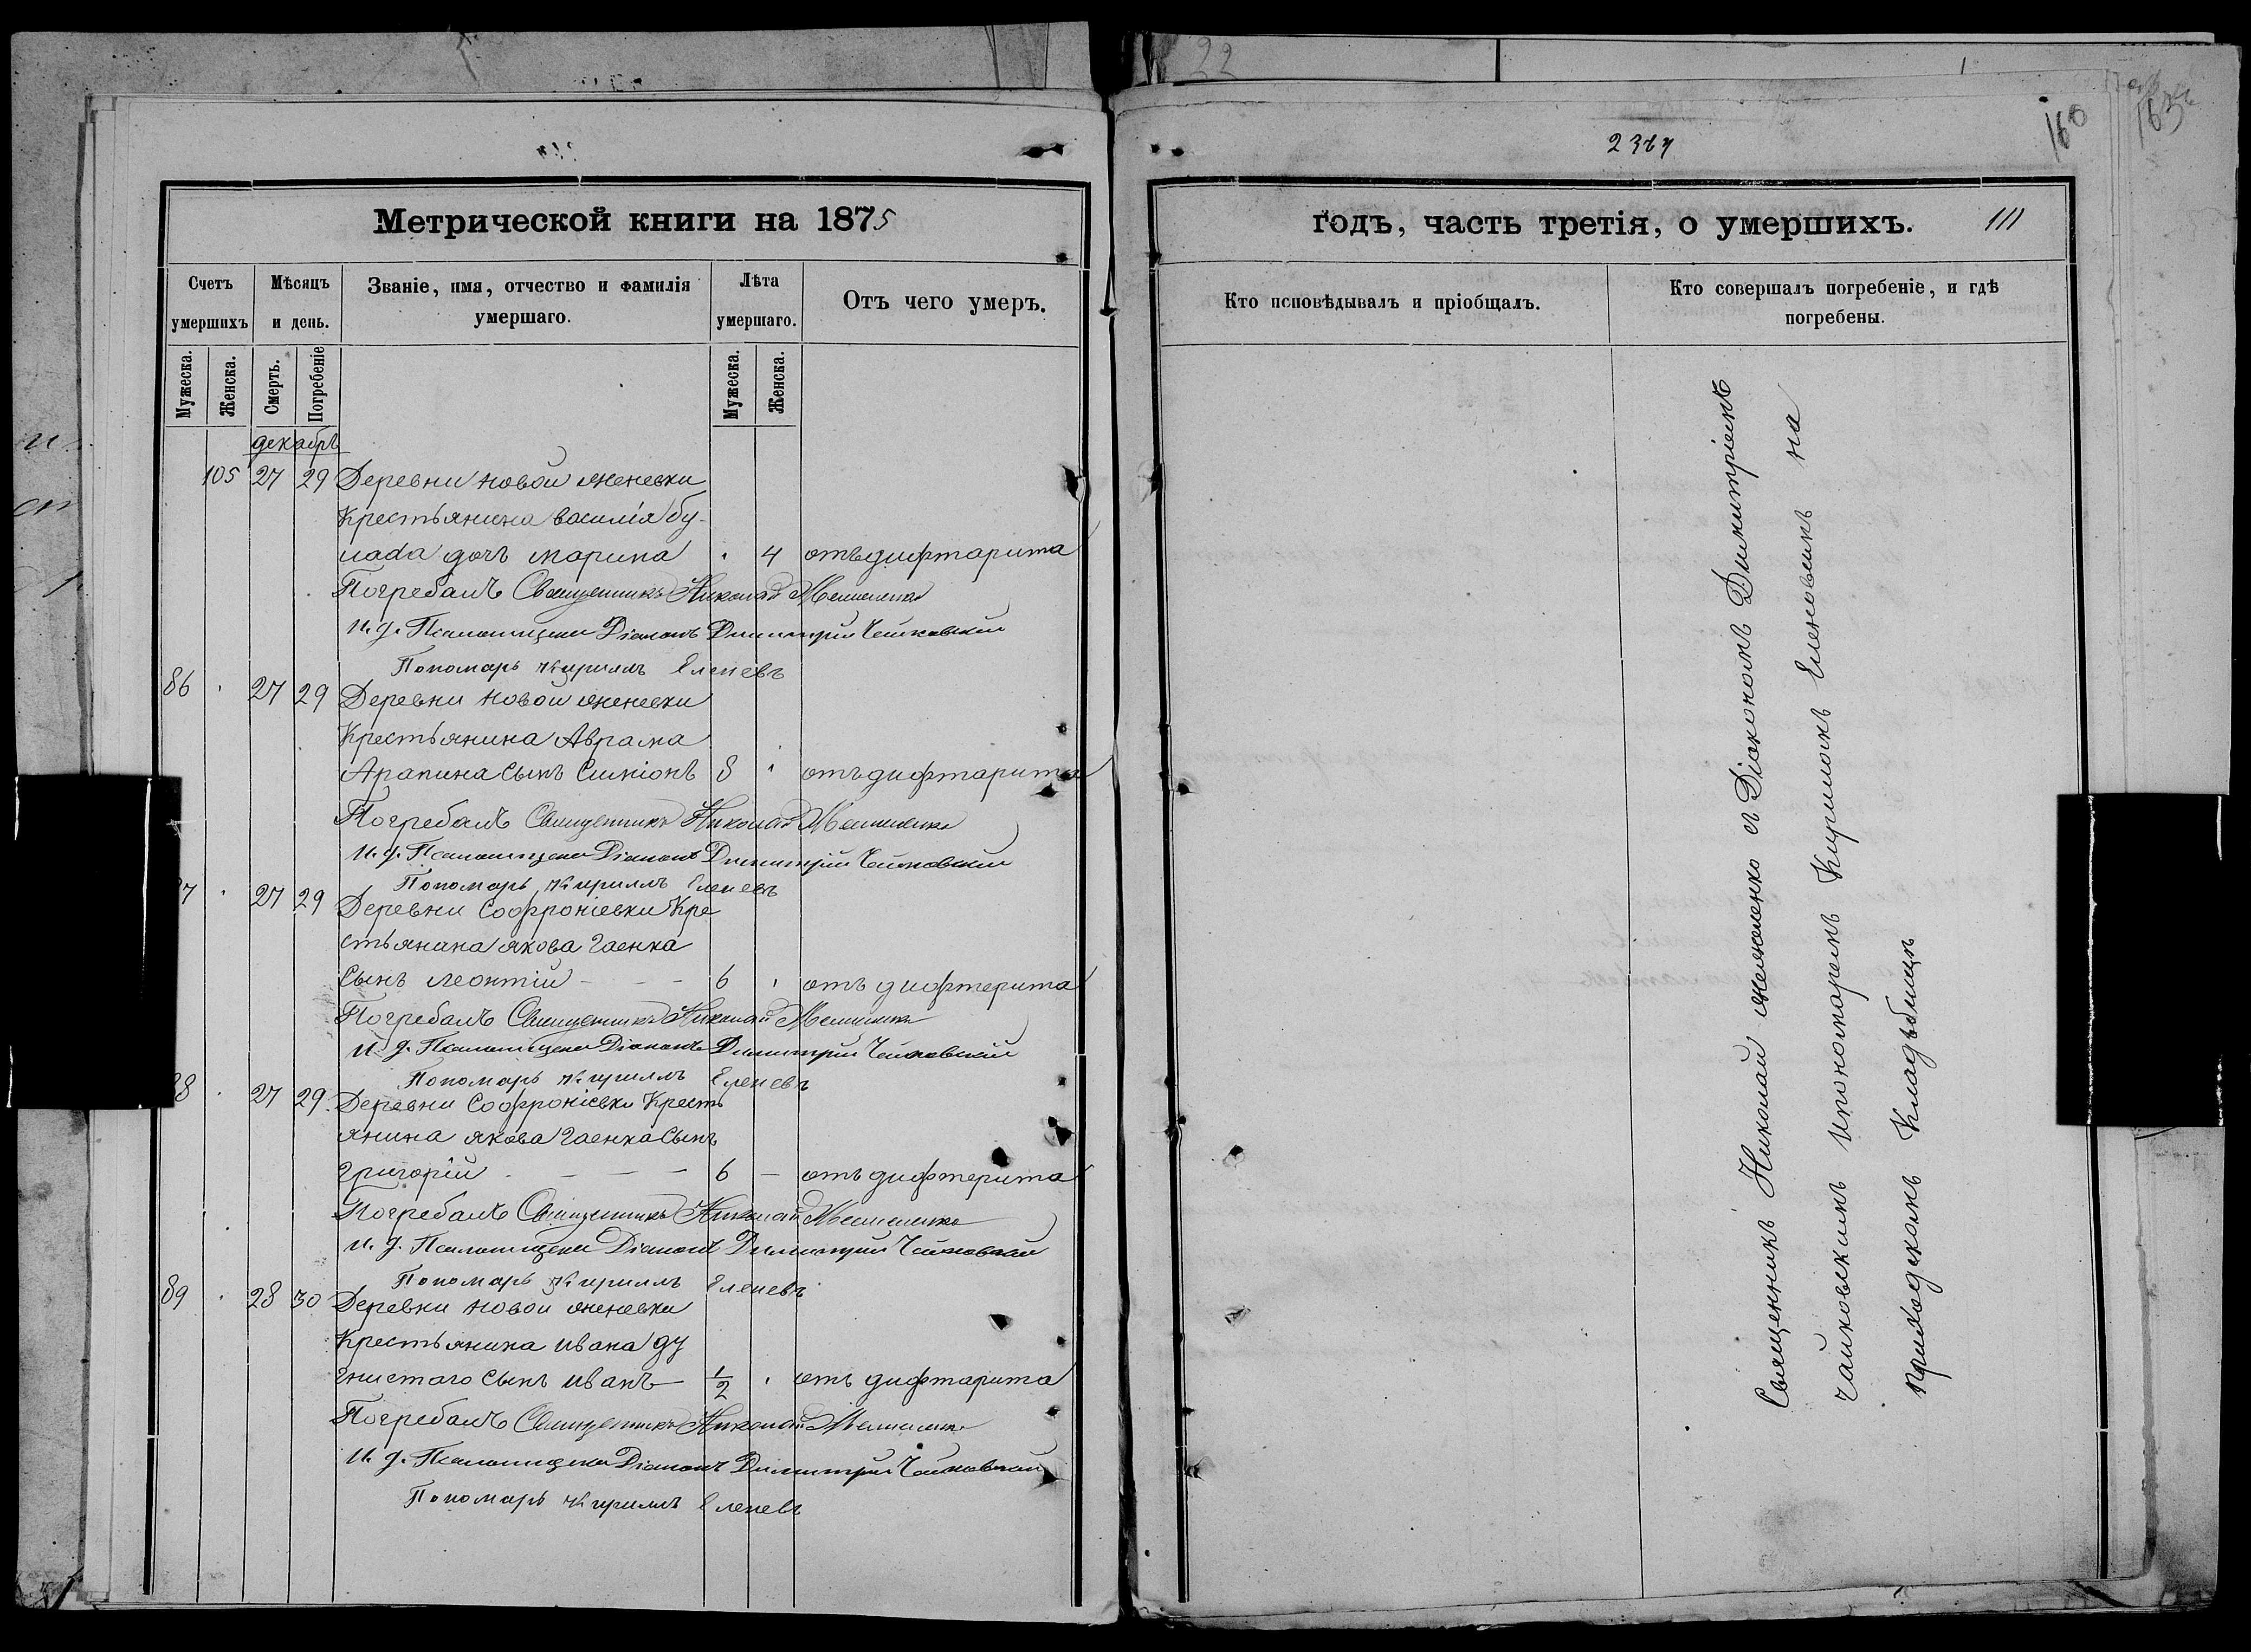 22
2367
160
Метрической книги на 1875
годъ, часть третія, о умершихъ.
111
Счетъ умершихъ
Мѣсяцъ и день.
Званіе, имя, отчество и фамилія умершаго.
Лѣта умершаго.
Отъ чего умеръ.
Кто исповѣдывалъ и пріобщалъ.
Кто совершалъ погребеніе, и гдѣ погребены.
Мужеска. Женска. Смерть. Погребеніе Мужеска. Женска.
декабрь
105 27 29 Деревни новой
Крестьянина василія бу-
лада дочъ марина 4 отъ дифтарита
Погребалъ Священникъ Николай
и. д. Псаломщика Діаконъ Димитрій Чайковскій
Пономарь Кирилъ Еленевъ
86 27 29 Деревни новой
Крестьянина Аврама
Арапина Сынъ Симіонъ 8 отъ дифтарита
Погребалъ Священникъ Николай
и. д. Псаломщика Діаконъ Димитрій Чайковскій
Пономарь Кирилъ Еленевъ
7 27 29 Деревни Софроніевки Кре
стьянина якова гаенка
Сынъ леонтій 6 отъ дифтерита
Погребалъ Священникъ Николай
и. д. Псаломщика Діаконъ Димитрій Чайковскій
Пономарь Кирилъ Еленевъ
8 27 29 Деревни Софроніевки Кресть
янина якова гаенка Сынъ
григорій 6 — отъ дифтерита
Погребалъ Священникъ Николай
и. д. Псаломщика Діаконъ Димитрій Чайковскій
Пономарь Кирилъ Еленевъ
89 28 30 Деревни новой
Крестьянина ивана ду
гнистаго Сынъ иванъ 1/2 отъ дифтарита
Погребалъ Священникъ Николай
и. д. Псаломщика Діаконъ Димитрій Чайковскій
Пономарь Кирилъ Еленевъ
Священникъ Николай с Діакономъ Димитріемъ
чайковскимъ ипономаремъ Кириломъ Еленовымъ на
приходскомъ Кладъбищѣ